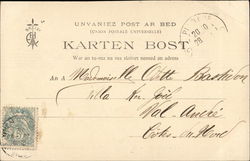 UNVANIEZ POST AR BED
(UNION POSTALE UNIVERSELLE)
KARTEN BOST
War an tu-ma na vez skrivet nemed an adress
An A Mademoiselle Bastidon
Villa Ker
Val-André
Côtes du Nord